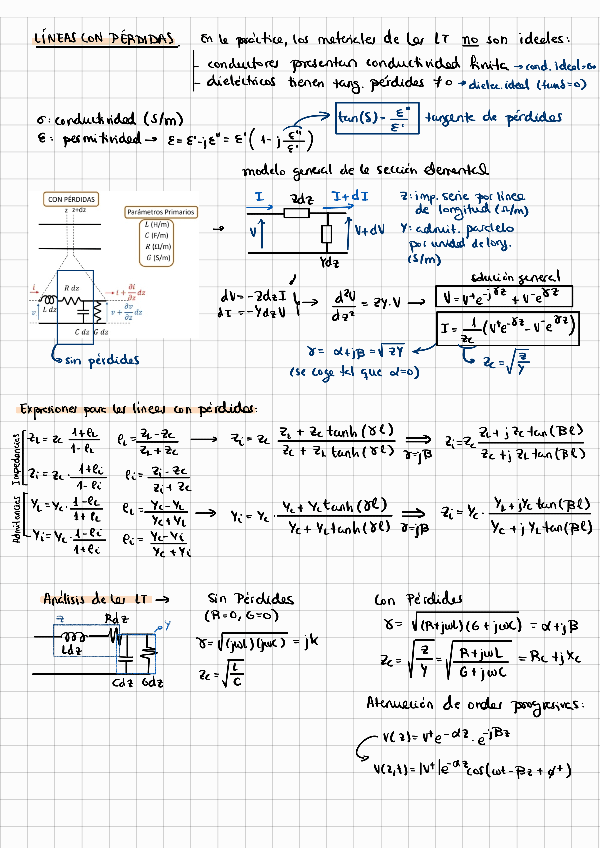 LÍNEAS CON PÉRDIDAS En la práctica, los materiales de las LT no son ideales:
- conductores presentan conductividad finita → cond. ideal=∞
- dieléctricos tienen tang. pérdidas ≠0 → dielec. ideal (tanδ=0)
σ: conductividad (S/m)
ε: permitividad → ε = ε'-jε'' = ε'(1-j ε''/ε')
tan(δ) - ε''/ε' tangente de pérdidas
modelo general de la sección elemental
CON PÉRDIDAS
z z+dz
Parámetros Primarios
L (H/m)
C (F/m)
R (Ω/m)
G (S/m)
R dz
i
i + ∂i/∂z dz
L dz
v
v + ∂v/∂z dz
C dz G dz
sin pérdidas
→
I Zdz I+dI
V V+dV
Ydz
Z: imp. serie por línea
de longitud (Ω/m)
Y: admit. paralelo
por unidad de long.
(S/m)
dV = -ZdzI
dI = -YdzV
→ d²V/dz² = ZY·V →
solución general
V = V⁺e^-jγz + V⁻e^γz
I = 1/Zc (V⁺e^-γz - V⁻e^γz)
γ = α+jβ = √ZY
(se coge tal que α=0)
Zc = √Z/Y
Expresiones para las líneas con pérdidas:
Impedancias
ZL = Zc 1+ρL/1-ρL ρL = ZL-Zc/ZL+Zc → Zi = Zc ZL + Zc tanh(γl)/Zc + ZL tanh(γl) ⇒ γ=jβ Zi = Zc ZL + j Zc tan(βl)/Zc + j ZL tan(βl)
Zi = Zc · 1+ρi/1-ρi ρi = Zi-Zc/Zi+Zc
Admitancias
YL = Yc · 1-ρL/1+ρL ρL = Yc-YL/Yc+YL → Yi = Yc · YL + Yc tanh(γl)/Yc + YL tanh(γl) ⇒ γ=jβ Zi = Yc · YL + jYc tan(βl)/Yc + j YL tan(βl)
Yi = Yc · 1-ρi/1+ρi ρi = Yc-Yi/Yc+Yi
Análisis de las LT →
Z Rdz Y
Ldz
Cdz Gdz
Sin Pérdidas
(R=0, G=0)
γ = √(jωL)(jωC) = jk
Zc = √L/C
Con Pérdidas
γ = √(R+jωL)(G+jωC) = α+jβ
Zc = √Z/Y = √R+jωL/G+jωC = Rc+jXc
Atenuación de ondas progresivas:
V(z) = V⁺e^-αz · e^-jβz
V(z,t) = |V⁺|e^-αz cos(ωt-βz+φ⁺)